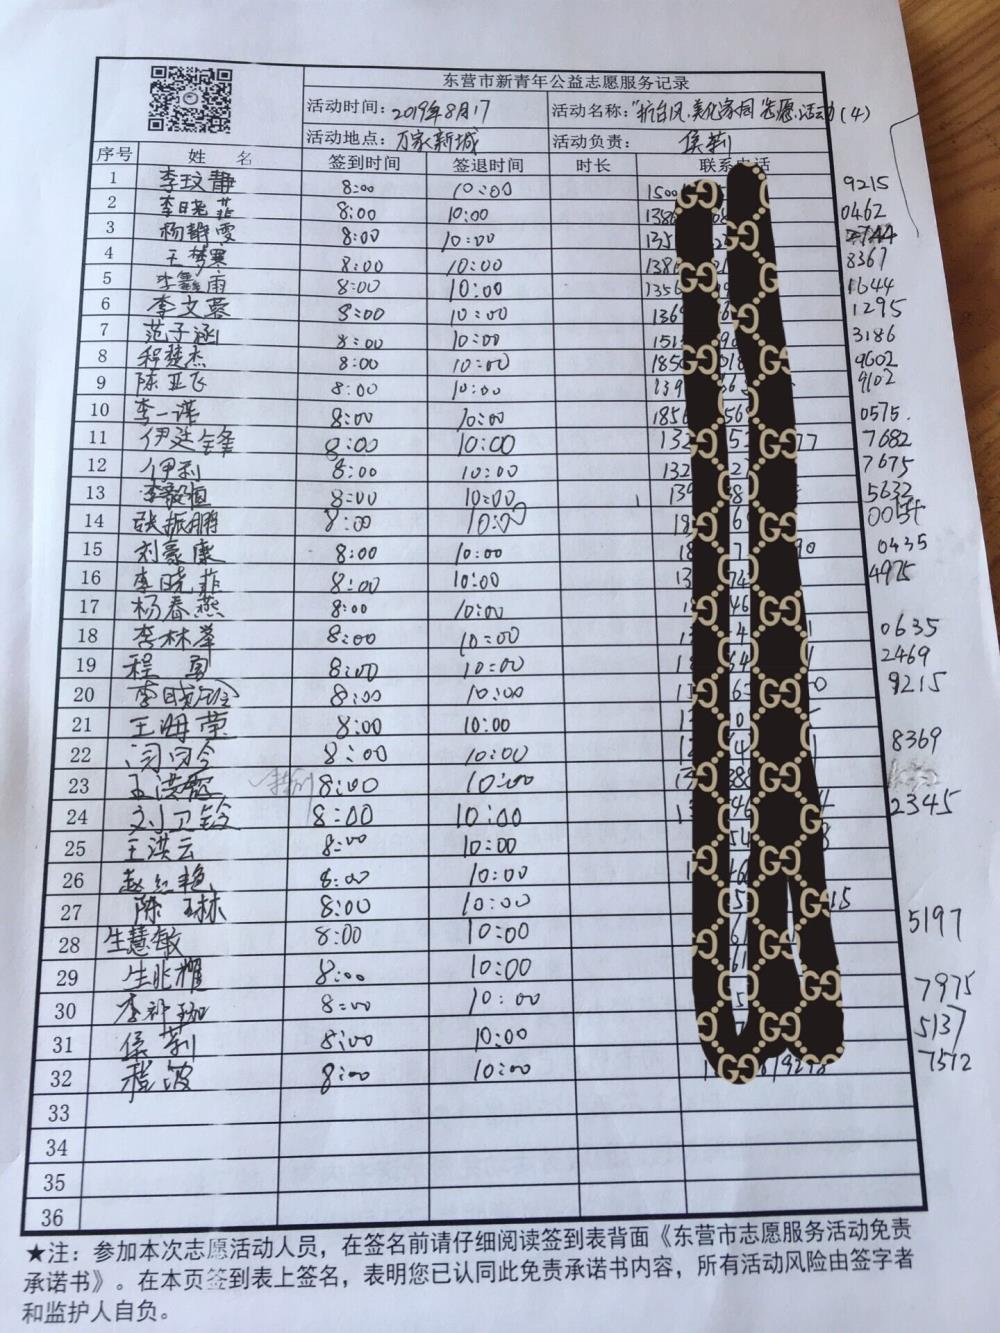 东营市新青年公益志愿服务记录
活动时间：2019年8月17 活动名称："抗台风.美化家园"志愿活动(4)
活动地点：万家新城 活动负责：侯莉
序号 姓 名 签到时间 签退时间 时长 联系电话
1 李玟静 8:00 10:00 9215
2 李晓菲 8:00 10:00 0462
3 杨静雯 8:00 10:00
4 王梦寒 8:00 10:00 8367
5 李鑫雨 8:00 10:00 1644
6 李文蓉 8:00 10:00 1295
7 范子涵 8:00 10:00 3186
8 程楚杰 8:00 10:00 9602
9 陈亚飞 8:00 10:00 9102
10 李一诺 8:00 10:00 0575.
11 伊廷锋 8:00 10:00 7682
12 伊利 8:00 10:00 7675
13 李毅恒 8:00 10:00 5632
14 张振鹏 8:00 10:00
15 刘豪康 8:00 10:00 0435
16 李晓菲 8:00 10:00 4975
17 杨春燕 8:00 10:00
18 李林峰 8:00 10:00 0635
19 程勇 8:00 10:00 2469
20 8:00 10:00 9215
21 王海荣 8:00 10:00
22 闫闪令 8:00 10:00 8369
23 王洪霞 8:00 10:00
24 刘卫铃 8:00 10:00 2345
25 王洪云 8:00 10:00
26 赵红艳 8:00 10:00
27 陈玉林 8:00 10:00
28 生慧敏 8:00 10:00 5197
29 生兆耀 8:00 10:00
30 8:00 10:00 7975
31 侯莉 8:00 10:00 5137
32 程波 8:00 10:00 7572
33
34
35
36
★注：参加本次志愿活动人员，在签名前请仔细阅读签到表背面《东营市志愿服务活动免责
承诺书》。在本页签到表上签名，表明您已认同此免责承诺书内容，所有活动风险由签字者
和监护人自负。